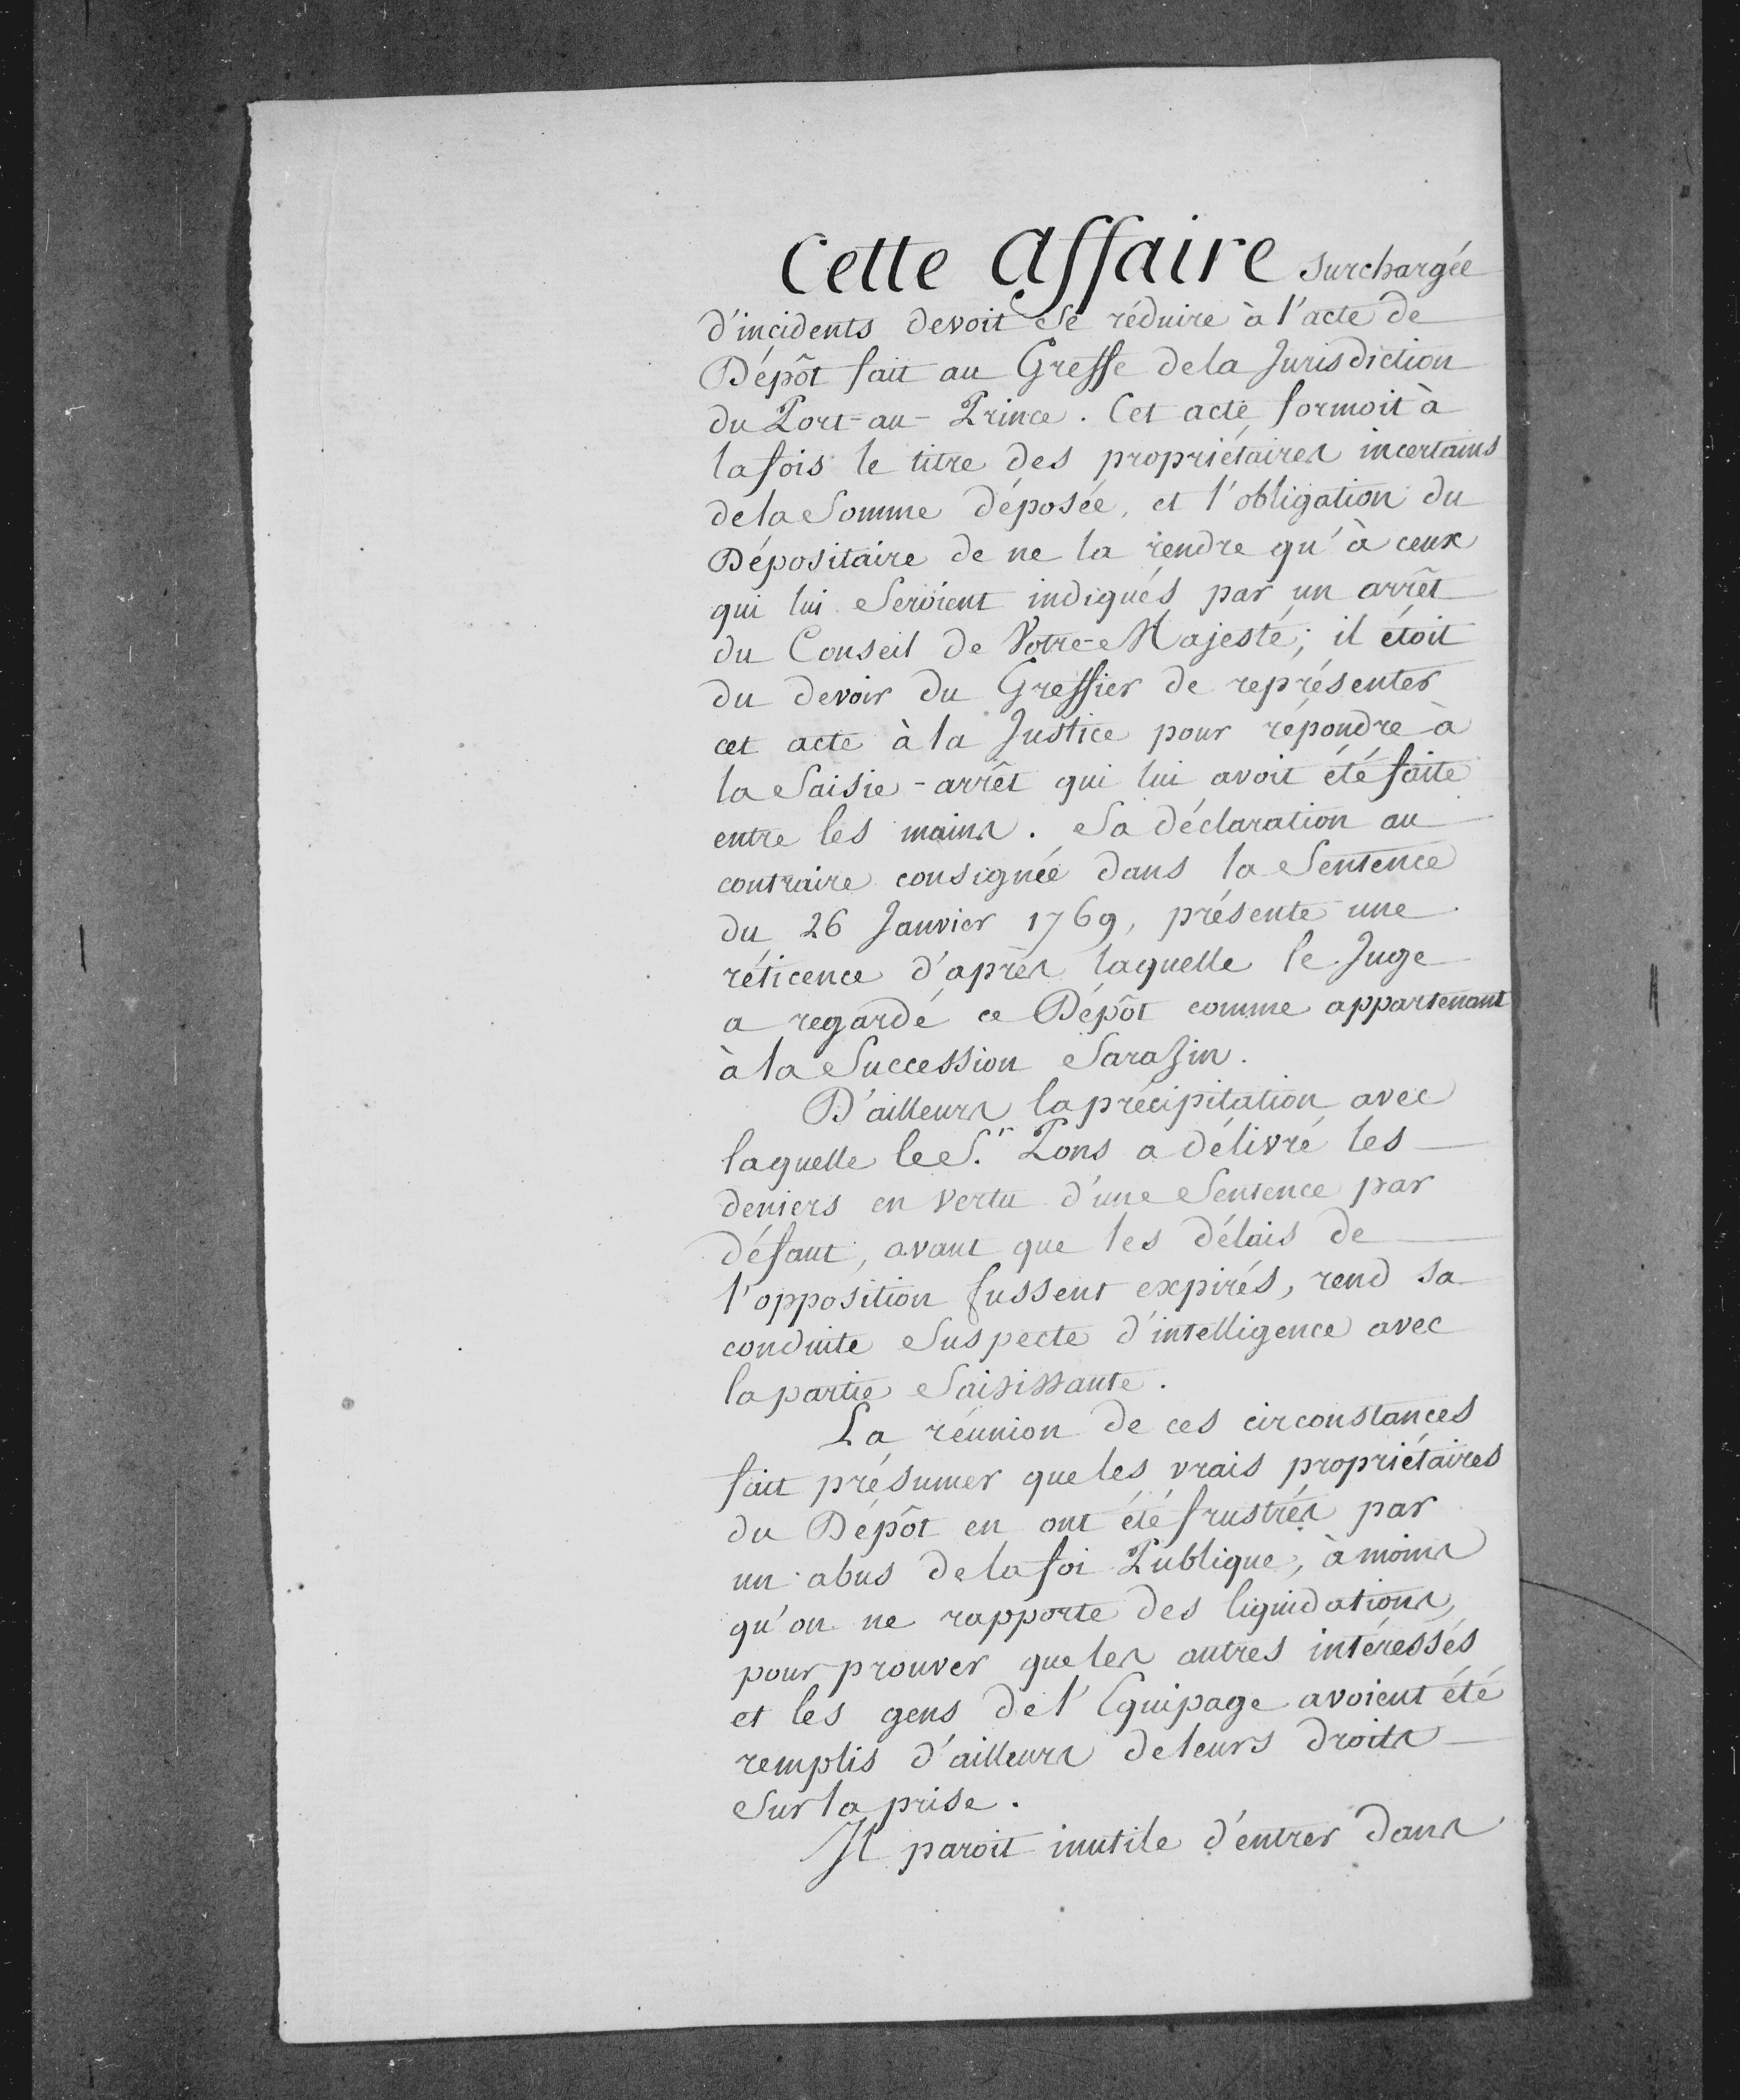 Cette Affaire surchargée
d'incidents devoit se réduire à l'acte de
Dépôt fait au Greffe de la Jurisdiction
du Port-au-Prince. Cet acte formoit à
la fois le titre des propriétaires incertains
de la Somme déposée, et l'obligation du
Dépositaire de ne la rendre qu'à ceux
qui lui Seroient indiqués par un arrêt
du Conseil de Votre-Majesté; il étoit
du devoir du Greffier de représenter
cet acte à la Justice pour répondre à
la Saisie-arrêt qui lui avoit été faite
entre les mains. Sa déclaration au
contraire consignée dans la Sentence
du 26 Janvier 1769, présente une
réticence d'après laquelle le Juge
a regardé ce Dépôt comme appartenant
à la Succession Sarazin.
D'ailleurs la précipitation avec
laquelle le S.r Pons a délivré les
deniers en vertu d'une Sentence par
défaut, avant que les délais de
l'opposition fussent expirés, rend sa
conduite Suspecte d'intelligence avec
la partie Saisissante.
La réunion de ces circonstances
fait présumer que les vrais propriétaires
du Dépôt en ont été frustrés par
un abus de la foi Publique, à moins
qu'on ne rapporte des liquidations,
pour prouver que les autres intéressés
et les gens de l'Equipage avoient été
remplis d'ailleurs de leurs droits
Sur la prise.
Il paroit inutile d'entrer dans